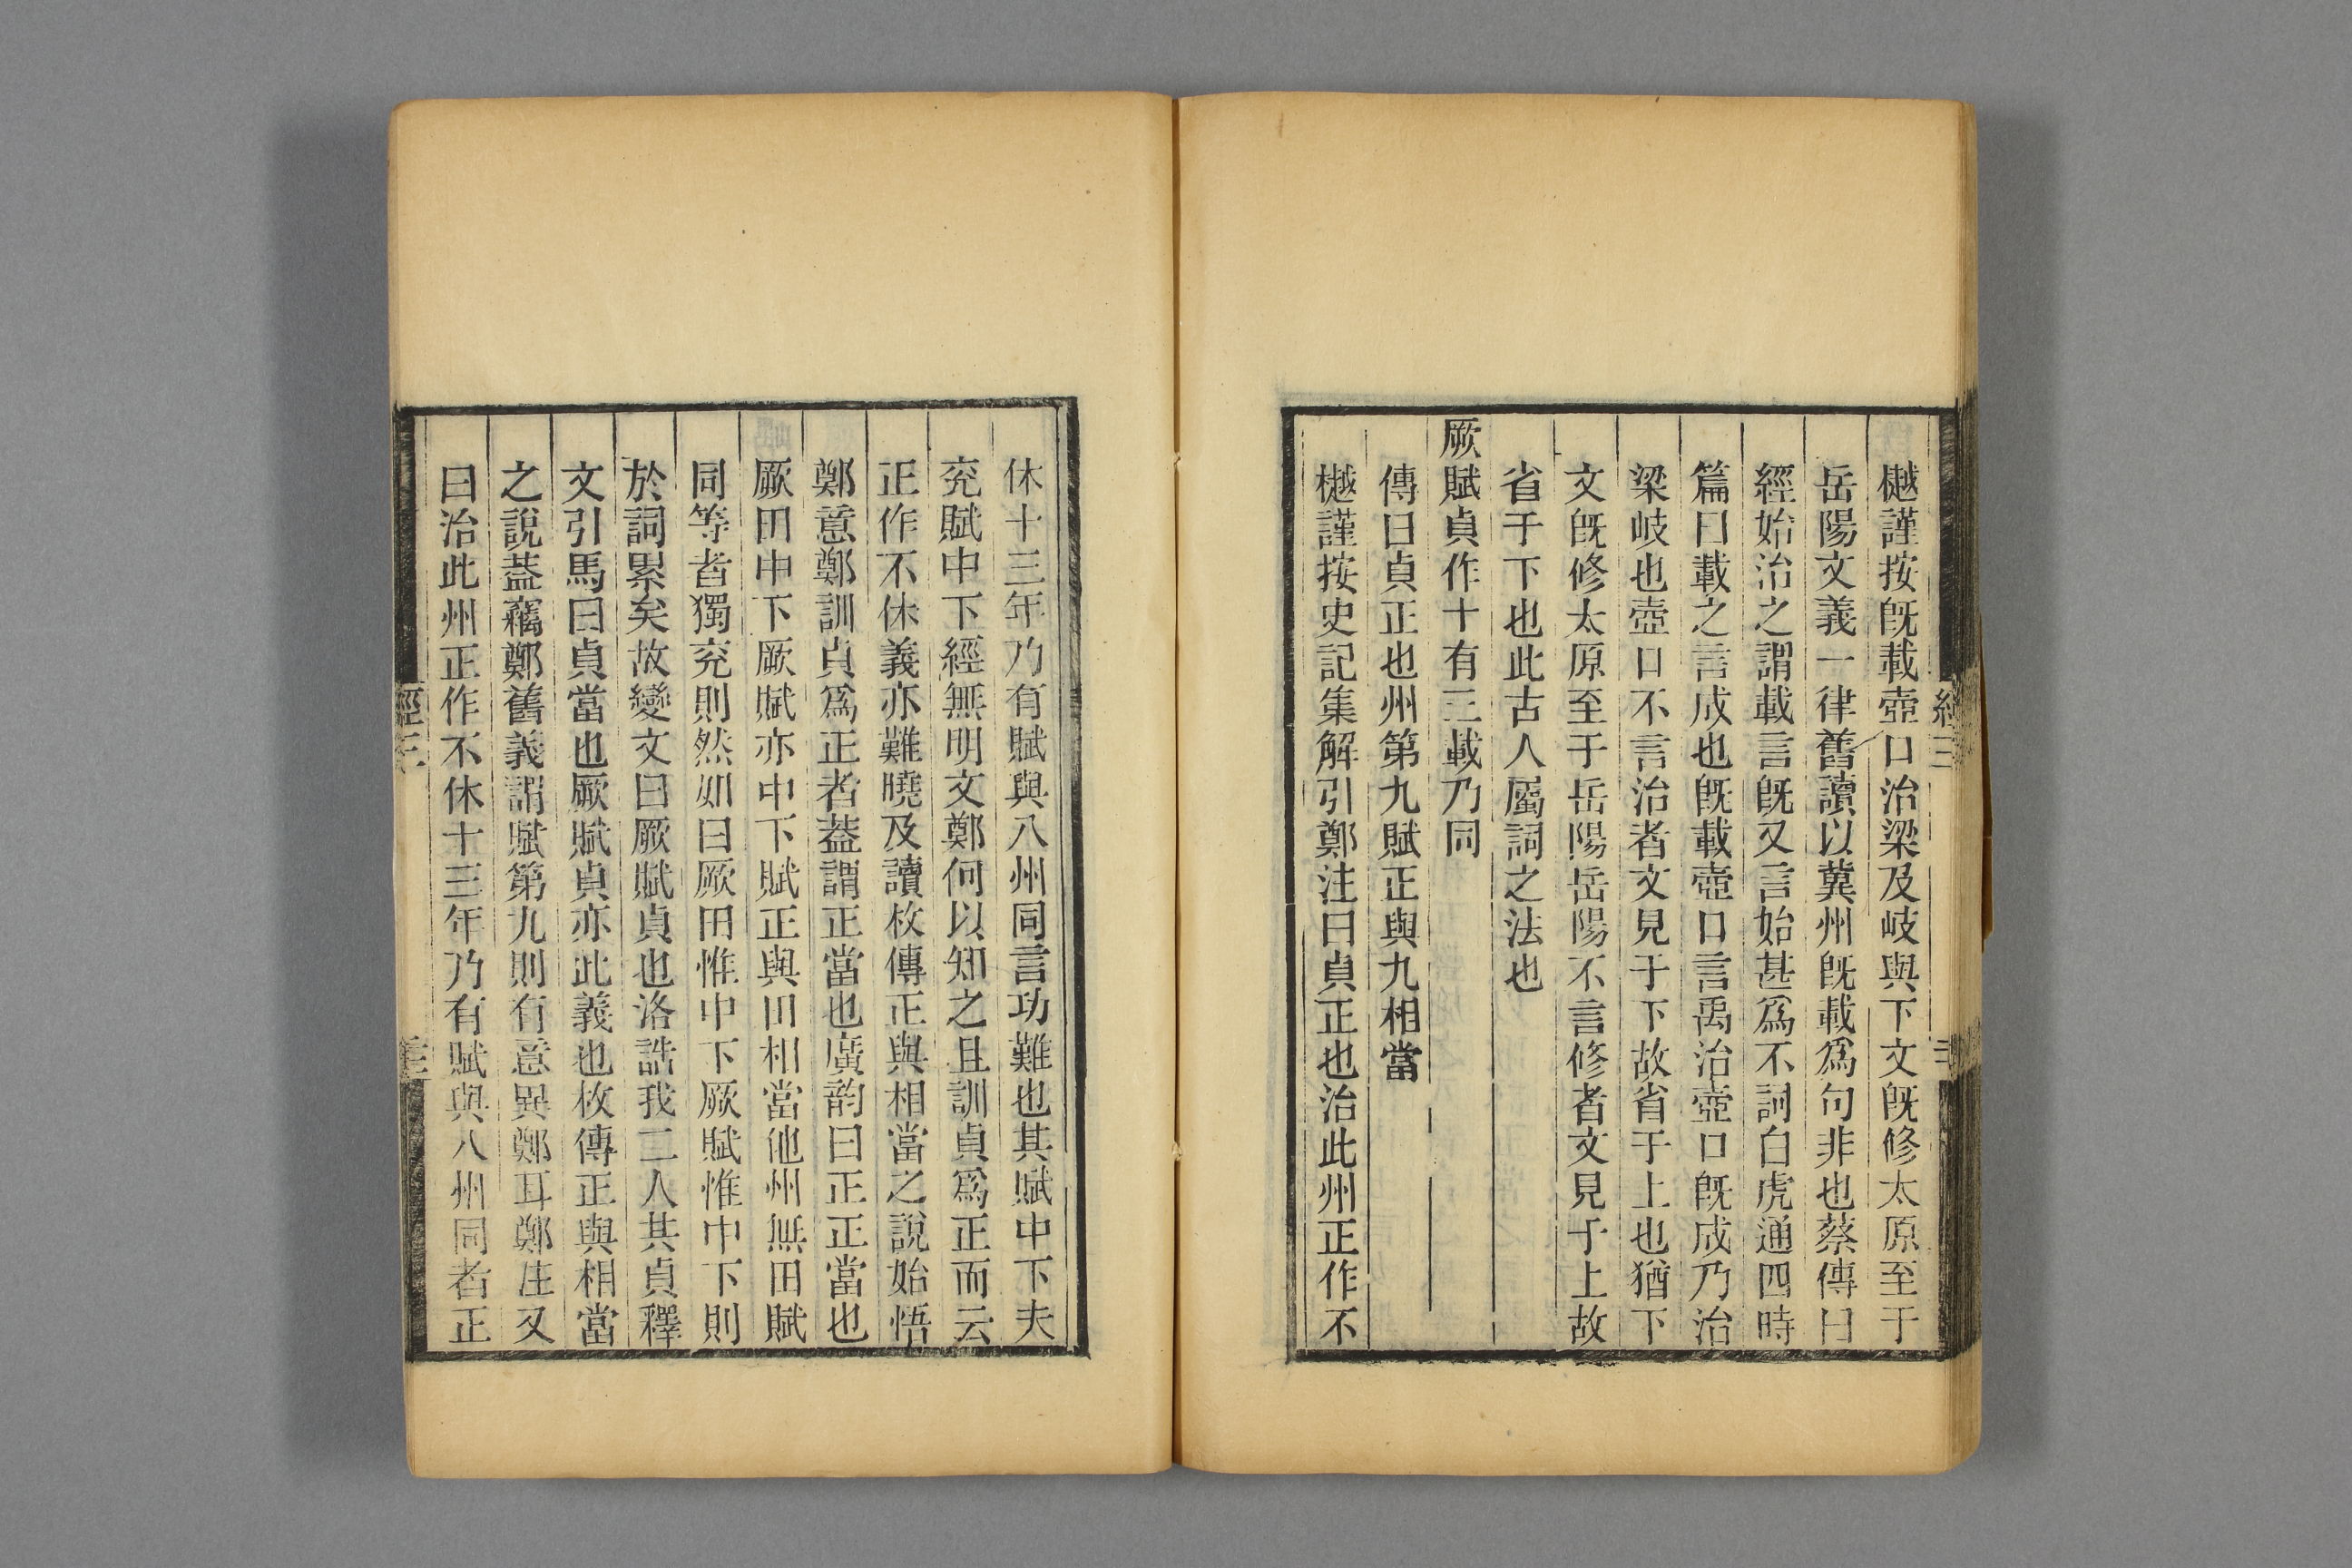 樾謹按旣載壺口治梁及岐與下文旣修太原至于
岳陽文義一律舊讀以冀州旣載爲句非也蔡傳曰
經始治之謂載言旣又言始甚爲不詞白虎通四時
篇曰載之言成也旣載壺口言禹治壺口旣成乃治
梁岐也壺口不言治者文見于下故省于上也猶下
文旣修太原至于岳陽岳陽不言修者文見于上故
省于下也此古人屬詞之法也
厥賦貞作十有三載乃同
傳曰貞正也州第九賦正與九相當
樾謹按史記集解引鄭注曰貞正也治此州正作不
休十三年乃有賦與八州同言功難也其賦中下夫
兖賦中下經無明文鄭何以知之且訓貞爲正而云
正作不休義亦難曉及讀枚傳正與相當之說始悟
鄭意鄭訓貞爲正者葢謂正當也廣韵曰正正當也
厥田中下厥賦亦中下賦正與田相當他州無田賦
同等者獨兖則然如曰厥田惟中下厥賦惟中下則
於詞累矣故變文曰厥賦貞也洛誥我二人共貞釋
文引馬曰貞當也厥賦貞亦此義也枚傳正與相當
之說葢竊鄭舊義謂賦第九則有意異鄭耳鄭注又
曰治此州正作不休十三年乃有賦與八州同者正
經三